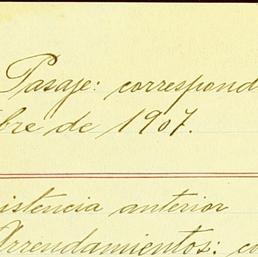 Pasaje: correspond
bre de 1907.
istencia anterior
Arrendamientos: co